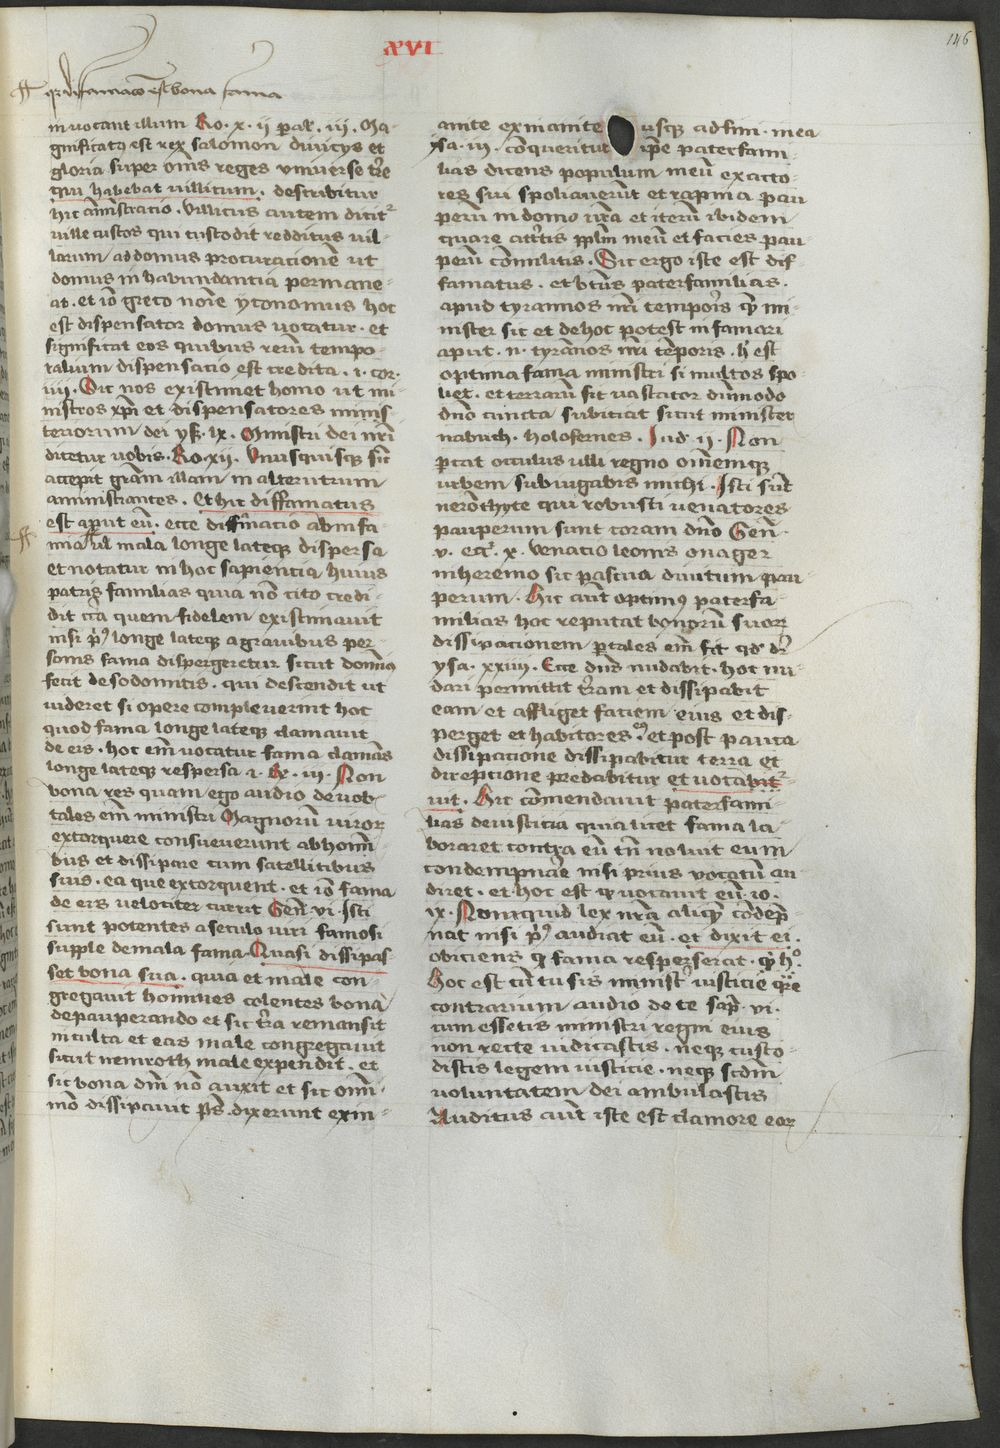 XVI
146
diffamacio est bona fama
invocant illum Ro. x. ii par. iii. Ma-
gnificatus est rex salomon divicys et
gloria super om̄s reges universe tr̄e
qui habebat villicum. describitur
hic am̄istracio. Villicus autem dicit᷑
ville custos qui custodit redditus vil-
larum ad domus procuracionē ut
domus in habundantia permane-
at. et iō greco noīe yconomus hoc
est dispensator domus vocatur. et
significat eos quibus rerū tempo-
ralium dispensacio est credita. i. cor.
iiii. Sic nos existimet homo ut mi-
nistros xp̄i et dispensatores minis-
teriorum dei ys. lx. Ministri dei nr̄i
dicetur vobis. Ro. xii. Unusquisqꝫ sic̄
accepit grām illam in alterutrum
aministrantes. Et hic diffamatus
est aput eū. ecce diffamacio ab in fa-
mia vl mala longe lateqꝫ dispersa
et notatur in hoc sapiencia huius
patris familias quia nō cito credi-
dit cͣa quem fidelem existimavit
nisi pͥꝰ longe lateqꝫ a gravibus per-
sonis fama dispergeretur sicut domīꝰ
fecit de sodomitis. qui descendit ut
videret si opere compleverint hoc
quod fama longe lateqꝫ clamavit
de eis. hoc em̄ vocatur fama clamās
longe lateqꝫ respersa i. Re. iii. Non
bona res quam ego audio de vob
tales em̄ ministri Magnorū viroꝝ
extorquere consueverunt ab homi-
bus et dissipare cum satellitibus
suis. ea que extorquent. et iō fama
de eis velociter currit Gen̄ vi. Isti
sunt potentes a seculo viri famosi
supple de mala fama. Quasi dissipas-
set bona sua. quia et male con-
gregavit homines colentes bona
depauperando et sic tr̄a remansit
inculta et eas male congregavit
sicut nemroth male expendit. et
sic bona dn̄i nō auxit et sic om̄i-
mo dissipavit ps̄. dixerunt exin-
anite exinanite usqꝫ ad fini. mea
ysa. iii. conqueritur ip̄e paterfami-
lias dicens populum meū exacto-
res sui spoliaverūt et rapina pau
perū in domo vr̄a et iterū ibidem
quare attr̄itis pplm̄ meū et facies pau
perū com̄litis. Sic ergo iste est dif-
famatus. et btūs paterfamilias.
apud tyrannos nr̄i temporis qm̄ mi-
nister sic et de hoc potest infamari
aput. n. tyrānos nr̄i tēporis. hͦ est
optima fama ministri si multos spo-
liet. et terrarū sit vastator dūmodo
dn̄o cuncta subiciat sicut minister
nabuch. holofernes. Iud. ii. Non
p̄cat occulus ulli regno om̄emqꝫ
urbem subiugabis michi. Isti sūt
nerōthyte qui robusti venatores
pauperum sunt coram dn̄o Gen̄.
v. ecc. x. Venacio leonis onager
in heremo sic pascua divitum pau
perum. Hic aūt optimꝰ paterfa-
milias hoc reputat bonorū suoꝝ
dissipacionem p tales em̄ fit qd̄ dr̄
ysa. xxiiii. Ecce dn̄s nudabit. hoc nu
dari permittit tr̄am et dissipabit
eam et affliget faciem eius et dis-
perget et habitores et post pauca
dissipacione dissipabitur terra et
direpcione predabitur et vocabit᷑
vit. Hic com̄endavit paterfami-
lias de iusticia quia licet fama la-
boraret contra eū tn̄ noluit eum
condempnare nisi prius vocatū au
diret. et hoc est qd vocavit eū. io.
ix. Numquid lex nr̄a aliquē condep̄-
nat nisi pͥꝰ audiat eū. et dixit ei.
obiciens qd fama resperserat. qd hͦ.
Hoc est cū tu sis minist̄ iusticie qre
contrarium audio de te sap̄. vi.
cum essetis ministri regni eius
non recte iudicastis. neqꝫ custo-
distis legem iusticie. neqꝫ scdm̄
voluntatem dei ambulastis
Auditus aūt iste est clamore eoꝝ